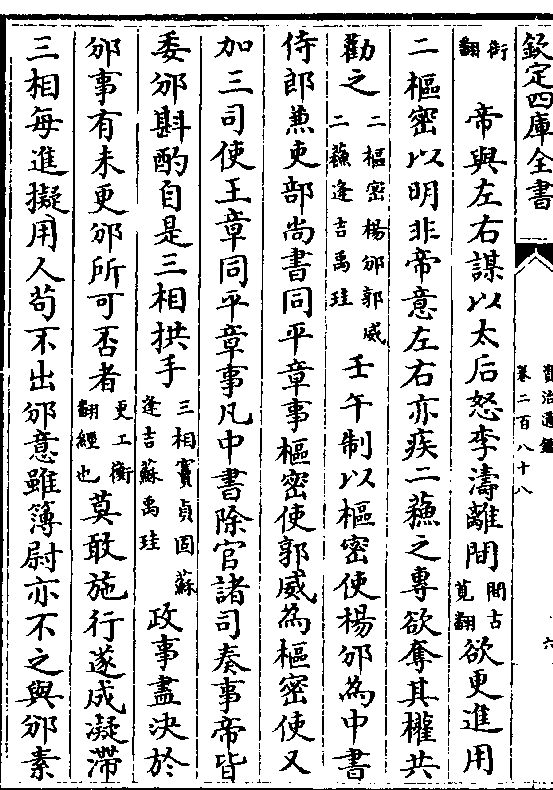 欽定四庫全書
資治通鑑
卷二百八十八
六
衡翻　帝與左右謀以太后怒李濤離間間古莧翻欲更進用
二樞密以明非帝意左右亦疾二蘇之專欲奪其權共
勸之二樞密楊邠郭威二蘇逢吉禹珪壬午制以樞密使楊邠為中書
侍郎兼吏部尚書同平章事樞密使郭威為樞密使又
加三司使王章同平章事凡中書除官諸司奏事帝皆
委邠斟酌自是三相拱手三相竇貞固蘇逢吉蘇禹珪政事盡決於
邠事有未更邠所可否者更工衡翻經也莫敢施行遂成凝滯
三相每進擬用人苟不出邠意雖簿尉亦不之與邠素